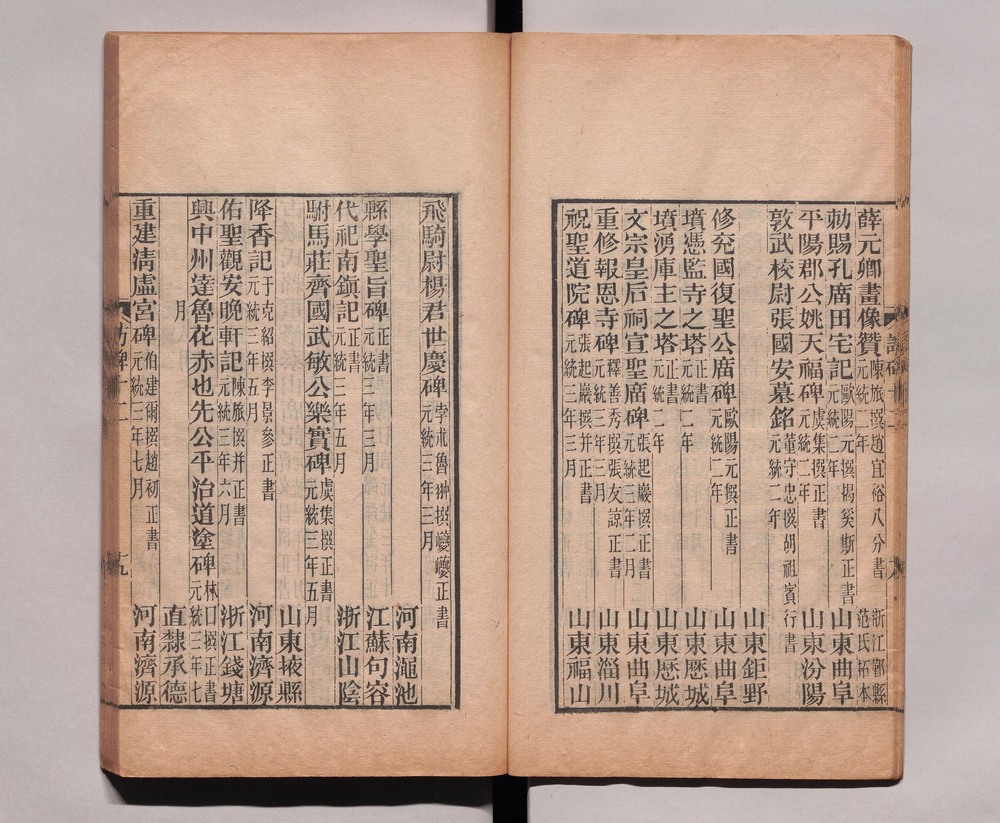 薛元卿畫像贊 陳旅撰趙宜裕八分書 元統二年 浙江鄞縣范氏拓本
勅賜孔廟田宅記 歐陽元撰揭奚斯正書 元統二年 山東曲阜
平陽郡公姚天福碑 虞集撰正書 元統二年 山東汾陽
敦武校尉張國安墓銘 董守忠撰胡祖賓行書 元統二年
山東鉅野
修兖國復聖公廟碑 歐陽元撰正書 元統二年 山東曲阜
墳憑監寺之塔 正書 元統二年 山東歷城
墳湧庫主之塔 正書 元統二年 山東歷城
文宗皇后祠宣聖廟碑 張起巖撰正書 元統三年二月 山東曲阜
重修報恩寺碑 釋善秀撰張友諒正書 元統三年三月 山東淄川
祝聖道院碑 張起巖撰并正書 元統三年三月 山東福山
飛騎尉楊君世慶碑 孛朮魯翀撰巙巙正書 元統三年三月
河南澠池
縣學聖旨碑 正書 元統三年三月 江蘇句容
代祀南鎮記 正書 元統三年五月 浙江山陰
駙馬莊齊國武敏公樂實碑 虞集撰正書 元統三年五月
山東掖縣
降香記 于克紹撰李景參正書 元統三年五月 河南濟源
佑聖觀安晚軒記 陳旅撰并正書 元統三年六月 浙江錢塘
興中州達魯花赤也先公平治道塗碑 林口撰正書 元統三年七
月 直隸承德
重建清虛宮碑 伯建爾撰趙初正書 元統三年七月 河南濟源
訪碑十二
十九